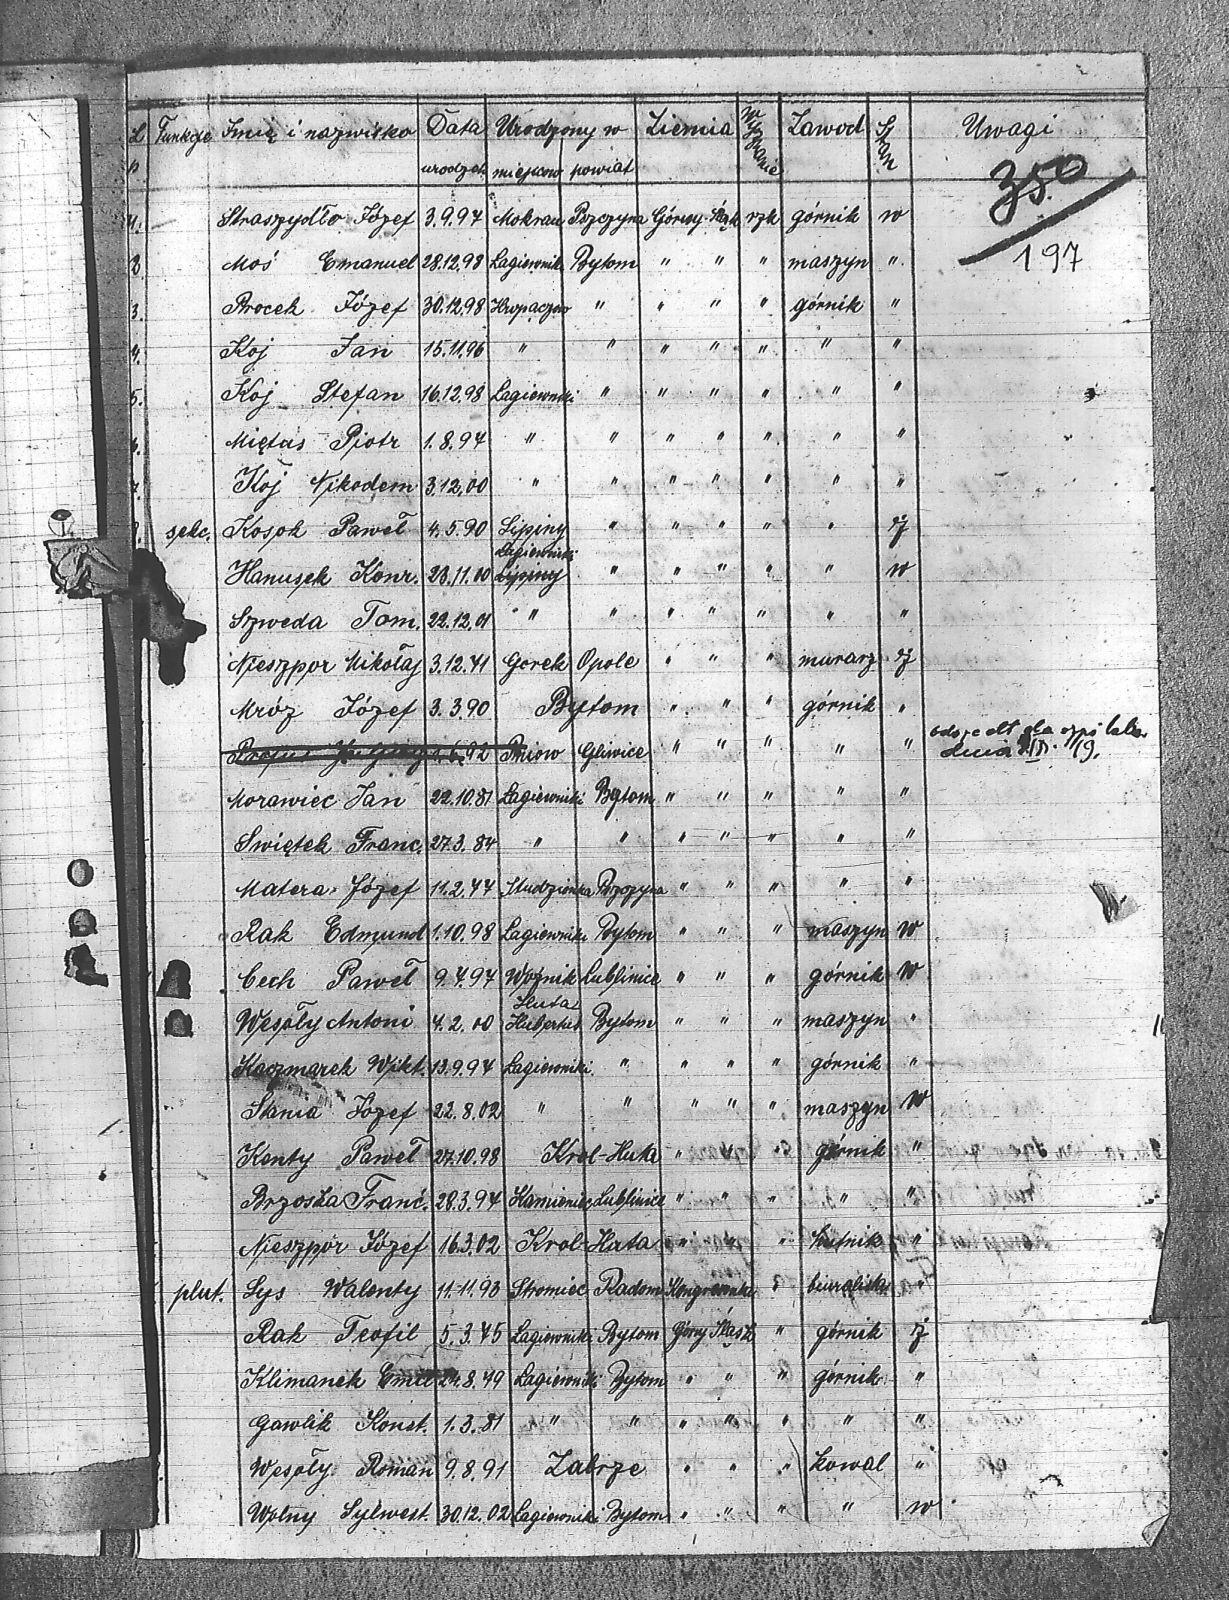 L Funkcje Imię i nazwisko Data Urodzony w Ziemia Wyznanie Zawod Stan Uwagi
p. urodzeń miejscow powiat
350
197
1. Straszydło Józef 3.9.97 Mokrau Pszczyna Górny-Śląsk rzk górnik w
2. Moś Emanuel 28.12.98 Lagiewnik Bytom " " " maszyn "
3. Procek Józef 30.12.98 Hropaczow " " " " górnik "
4. Koj Jan 15.11.96 " " " " " " "
5. Koj Stefan 16.12.98 Lagiewniki " " " " " "
6. Miętus Piotr 1.8.94 " " " " " " "
7. Koj Nikodem 3.12.00 " " " " " " "
8. sekc. Kosok Paweł 4.5.90 Lipiny " " " " " ż
Lagiewniki
Hanusek Konr. 23.11.00 Lipiny " " " " " w
Szweda Tom. 22.12.01 " " " " " " "
Nieszpor Mikołaj 3.12.71 Gorek Opole " " " murarz ż
Mróz Józef 3.3.90 Bytom " " " górnik "
6.92 Pniow Gliwice " " " " " odszedł do szpitala
dnia
Morawiec Jan 22.10.81 Lagiewniki Bytom " " " " "
Swiętek Franc. 27.3.84 " " " " " " "
Matera Józef 11.2.77 Studzionka Pszczyna " " " " "
Rak Edmund 1.10.98 Lagiewniki Bytom " " " maszyn w
Cech Paweł 9.4.97 Woźnik Lublinice " " " górnik w
Huta
Wesoły Antoni 4.2.00 Hubertus Bytom " " " maszyn "
Kaczmarek Wikt. 13.9.94 Lagiewniki " " " " górnik "
Stania Józef 22.8.02 " " " " " maszyn w
Kenty Paweł 27.10.98 Krol-Huta " " " górnik "
Brzoska Franc. 28.3.94 Kamieniec Lublinice " " " " "
Nieszpór Józef 16.3.02 Krol-Huta " " " hutnik "
plut. Lys Walenty 11.11.93 Stromiec Radom Kongresowka " biuralista "
Rak Teofil 5.3.75 Lagiewniki Bytom Górny Śląsk " górnik ż
Klimanek Emil 24.8.79 Lagiewniki Bytom " " " górnik "
Gawlik Konst. 1.3.81 " " " " " " "
Wesoły Roman 9.8.91 Zabrze " " " kowal "
Wolny Sylwest. 30.12.02 Lagiewniki Bytom " " " " w